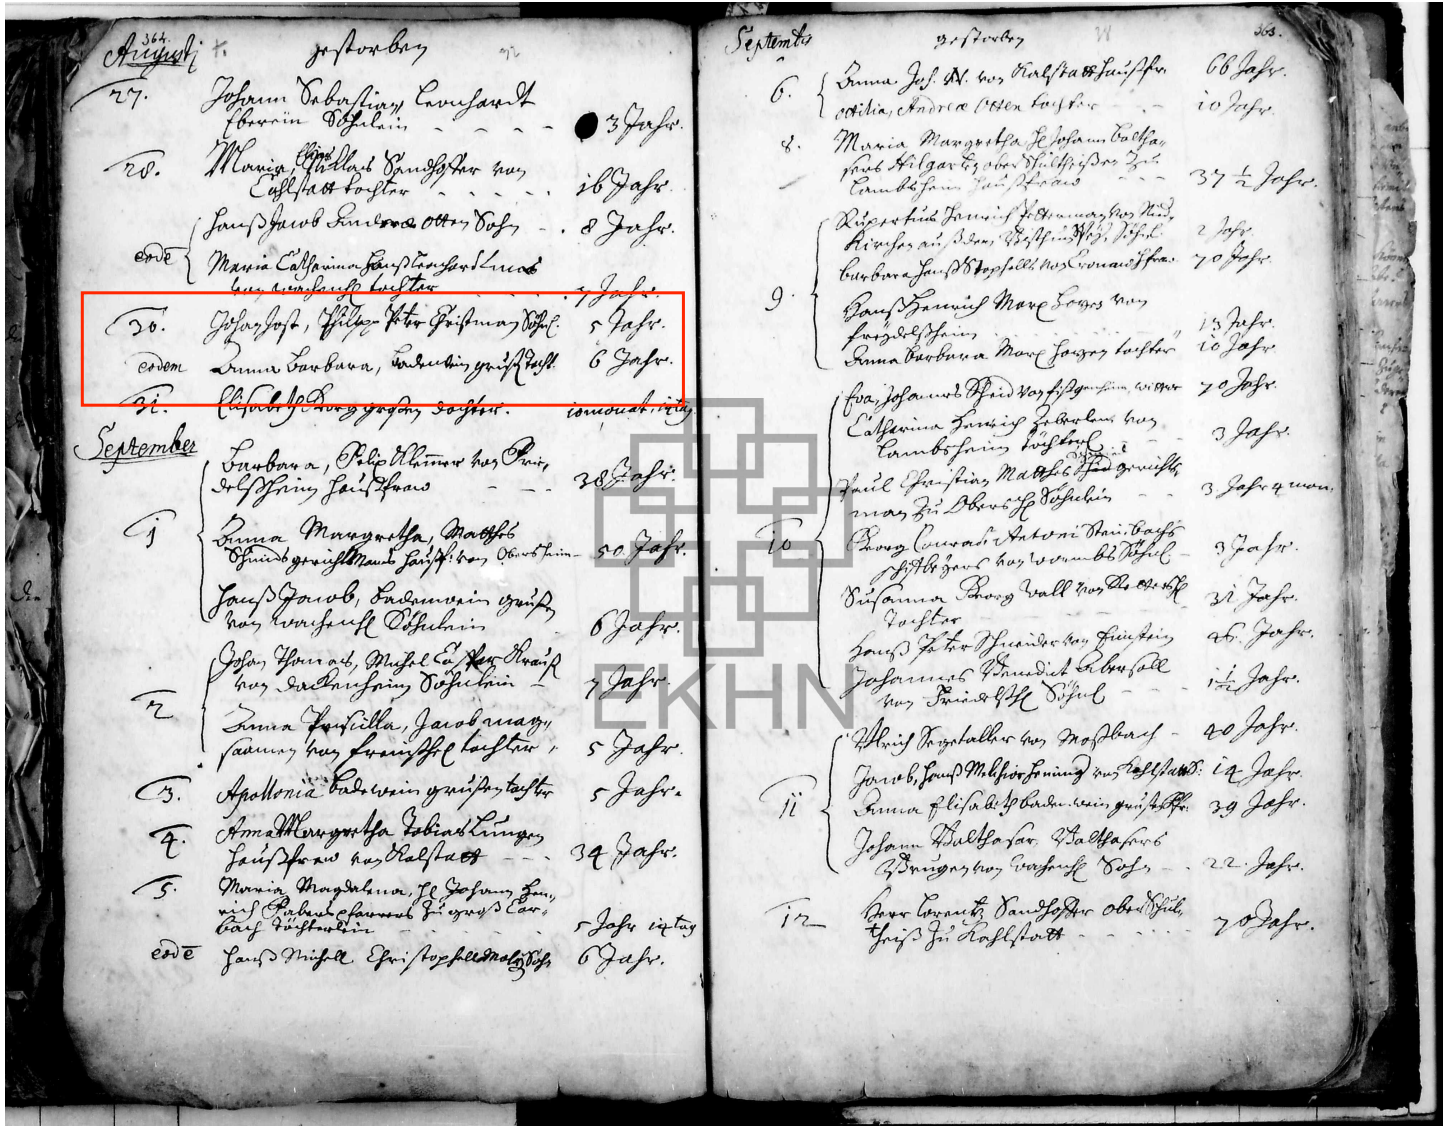 364.
Augusti
gestorben
27.
Johann Sebastian Leonhardt
Eberein Söhnlein - - - - 3 Jahr.
28.
Maria, Sandhoffer von
Calstatt tochter 16 Jahr.
eodē
Hanß Jacob Andreæ Otten Sohn - . 8 Jahr.
Maria Catharina Hanß Leonhard
von tochter 7 Jahr.
30. Johan Jost, Philipp Peter Christman Söhnl. 5 Jahr.
eodem Anna Barbara, Badenwein grußen tocht. 6 Jahr.
31. Elisabeth Georg großen dochter. 10 monat, tag
September
1
Barbara, Felix Klemmer von Frie-
delßheim haußfraw - - - 38 Jahr.
Anna Margretha, Matthes
Schmids gerichtsMans haußf: von Obersheim - 50 Jahr.
Hanß Jacob, Badenwein grußen
von wachenh Söhnlein 6 Jahr.
2
Johan Thomas, Michel Casper Krauß
von Dackenheim Söhnlein - 7 Jahr.
Anna Priscilla, Jacob mag-
von tochter, 5 Jahr.
3. Apollonia badewein grußen tochter 5 Jahr.
4. Anna Margretha Tobias Lungen
haußfraw von Kalstatt - - - 34 Jahr.
5. Maria Magdalena, H Johann Hen-
rich Fabers pfarrers zu groß Car-
bach töchterlein 5 Jahr 14 tag
eodē Hanß Michell Christophell Sohn 6 Jahr.
Septembris
gestorben
365.
6.
Anna Joh. von Kalstatt Haußfr. 66 Jahr.
Ottilia, Andreæ Otten tochter 10 Jahr.
8. Maria Margretha H Johann Baltha-
sers Hilgart, ober Schultheißen zu
Lambsheim Haußfraw 37 ½ Jahr.
9.
Rupertus Henrich Petterman von
Kirchen auß dem Söhnl 2 Jahr.
Barbara Hanß Stophells von fraw 70 Jahr.
Hanß Henrich Marx von
freydelßheim 13 Jahr.
Anna Barbara Marx tochter 10 Jahr.
10
Eva, Johannes Scheid von wittwe 70 Jahr.
Catharina Henrich Heberlein von
Lambsheim töchterl 3 Jahr.
Paul Christian Matthes Schmid gerichts
man zu Obersh Söhnlein - - 3 Jahr 4 mon.
Georg Conrad Antoni Steinbachs
von wormbs Söhnl - 3 Jahr.
Susanna Georg Wall von
Tochter 31 Jahr.
Hanß Peter Schneider von Einstein 26. Jahr.
Johannes Benedict Ebersoll
von Friedelsh Söhnl - - - 1½ Jahr.
11
Ulrich Segetaller von Moßbach - 40 Jahr.
Jacob, Hanß Melchior Henning von Kahlstatt S: 14 Jahr.
Anna Elisabeth baden-wein gruß Fr. 39 Jahr.
Johann Balthasar, Balthasers
von wachenh Sohn - - 22. Jahr.
12
Herr Lorentz Sandhoffer oberSchul-
theiß zu Kahlstatt - - - - 70 Jahr.
EKHN